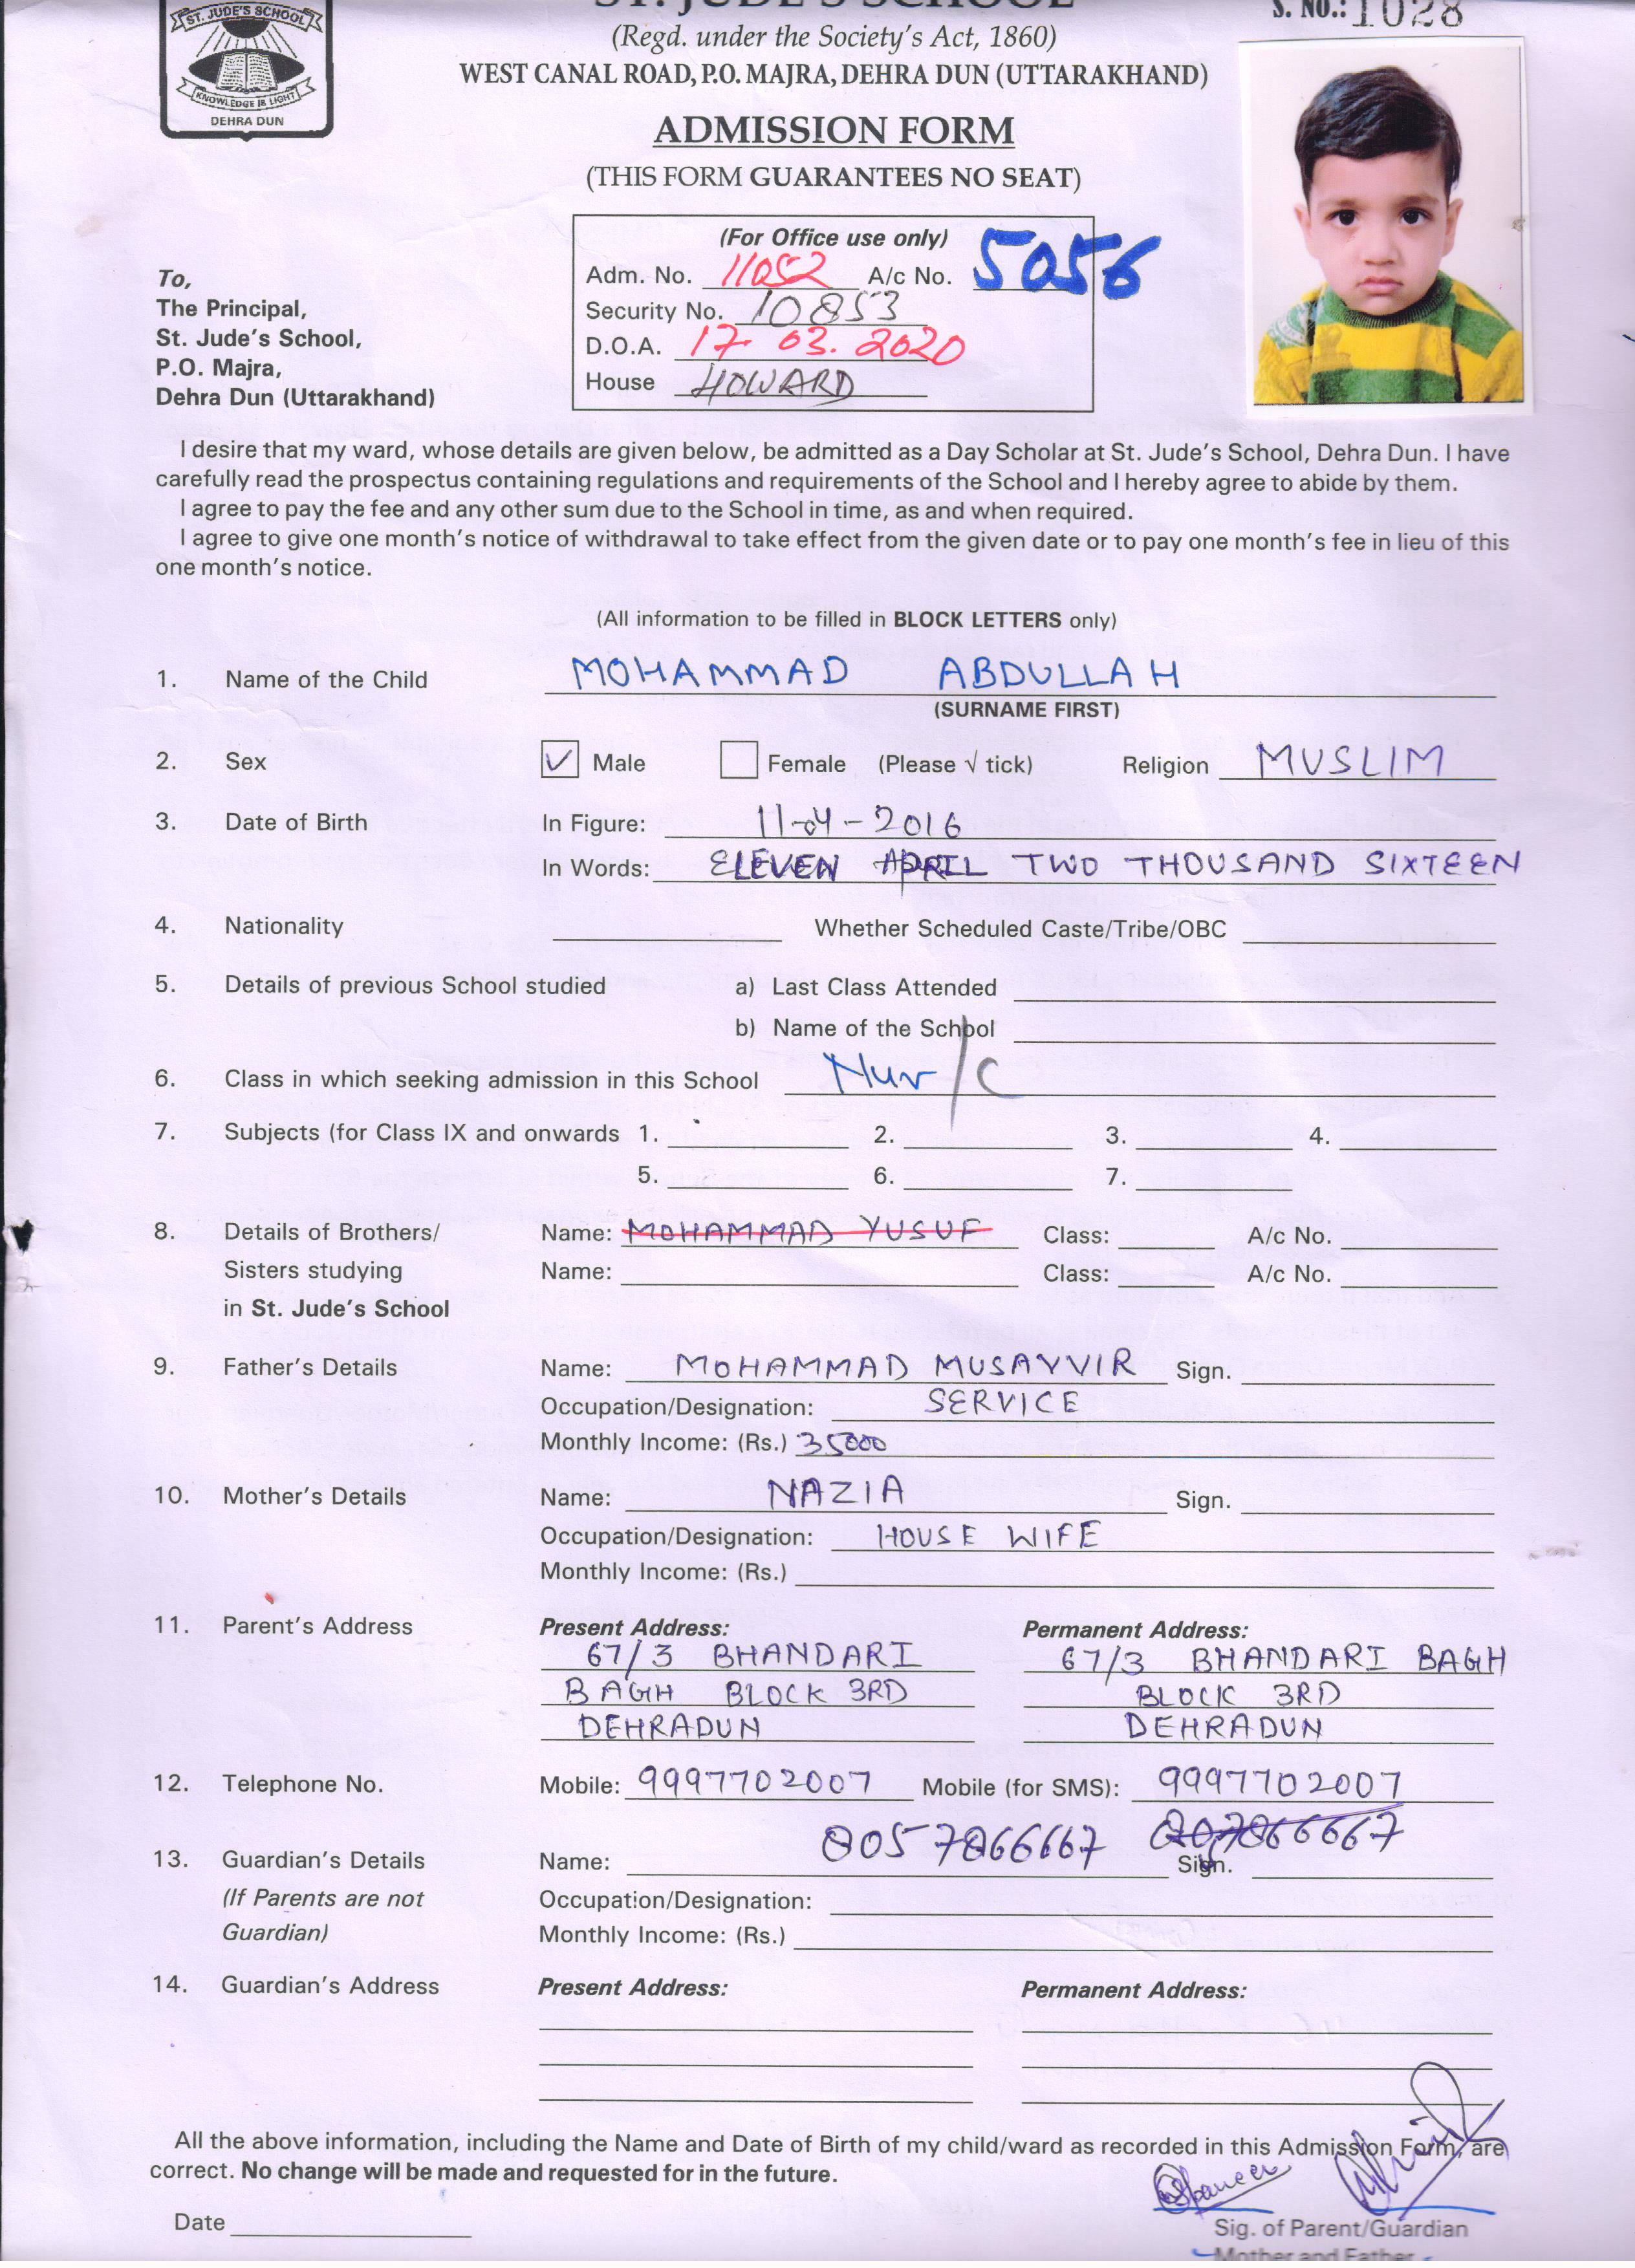 ST. JUDE'S SCHOOL
KNOWLEDGE IS LIGHT
DEHRA DUN
ST. JUDE'S SCHOOL
S. NO.: 1028
(Regd. under the Society's Act, 1860)
WEST CANAL ROAD, P.O. MAJRA, DEHRA DUN (UTTARAKHAND)
ADMISSION FORM
(THIS FORM GUARANTEES NO SEAT)
(For Office use only)
Adm. No. 11052 A/c No. 5056
Security No. 10853
D.O.A. 17-03.2020
House HOWARD
To,
The Principal,
St. Jude's School,
P.O. Majra,
Dehra Dun (Uttarakhand)
I desire that my ward, whose details are given below, be admitted as a Day Scholar at St. Jude's School, Dehra Dun. I have
carefully read the prospectus containing regulations and requirements of the School and I hereby agree to abide by them.
I agree to pay the fee and any other sum due to the School in time, as and when required.
I agree to give one month's notice of withdrawal to take effect from the given date or to pay one month's fee in lieu of this
one month's notice.
(All information to be filled in BLOCK LETTERS only)
1. Name of the Child MOHAMMAD ABDULLAH
(SURNAME FIRST)
2. Sex ✓ Male Female (Please √ tick) Religion MUSLIM
3. Date of Birth In Figure: 11-04-2016
In Words: ELEVEN APRIL TWO THOUSAND SIXTEEN
4. Nationality Whether Scheduled Caste/Tribe/OBC
5. Details of previous School studied a) Last Class Attended
b) Name of the School
6. Class in which seeking admission in this School Nur/C
7. Subjects (for Class IX and onwards 1. 2. 3. 4.
5. 6. 7.
8. Details of Brothers/ Name: MOHAMMAD YUSUF Class: A/c No.
Sisters studying Name: Class: A/c No.
in St. Jude's School
9. Father's Details Name: MOHAMMAD MUSAVVIR Sign.
Occupation/Designation: SERVICE
Monthly Income: (Rs.) 35000
10. Mother's Details Name: NAZIA Sign.
Occupation/Designation: HOUSE WIFE
Monthly Income: (Rs.)
11. Parent's Address Present Address: Permanent Address:
67/3 BHANDARI 67/3 BHANDARI BAGH
BAGH BLOCK 3RD BLOCK 3RD
DEHRADUN DEHRADUN
12. Telephone No. Mobile: 9997702007 Mobile (for SMS): 9997702007
8057866667
13. Guardian's Details Name: Sign.
(If Parents are not Occupation/Designation:
Guardian) Monthly Income: (Rs.)
14. Guardian's Address Present Address: Permanent Address:
All the above information, including the Name and Date of Birth of my child/ward as recorded in this Admission Form, are
correct. No change will be made and requested for in the future.
Date
Sig. of Parent/Guardian
Mother and Father